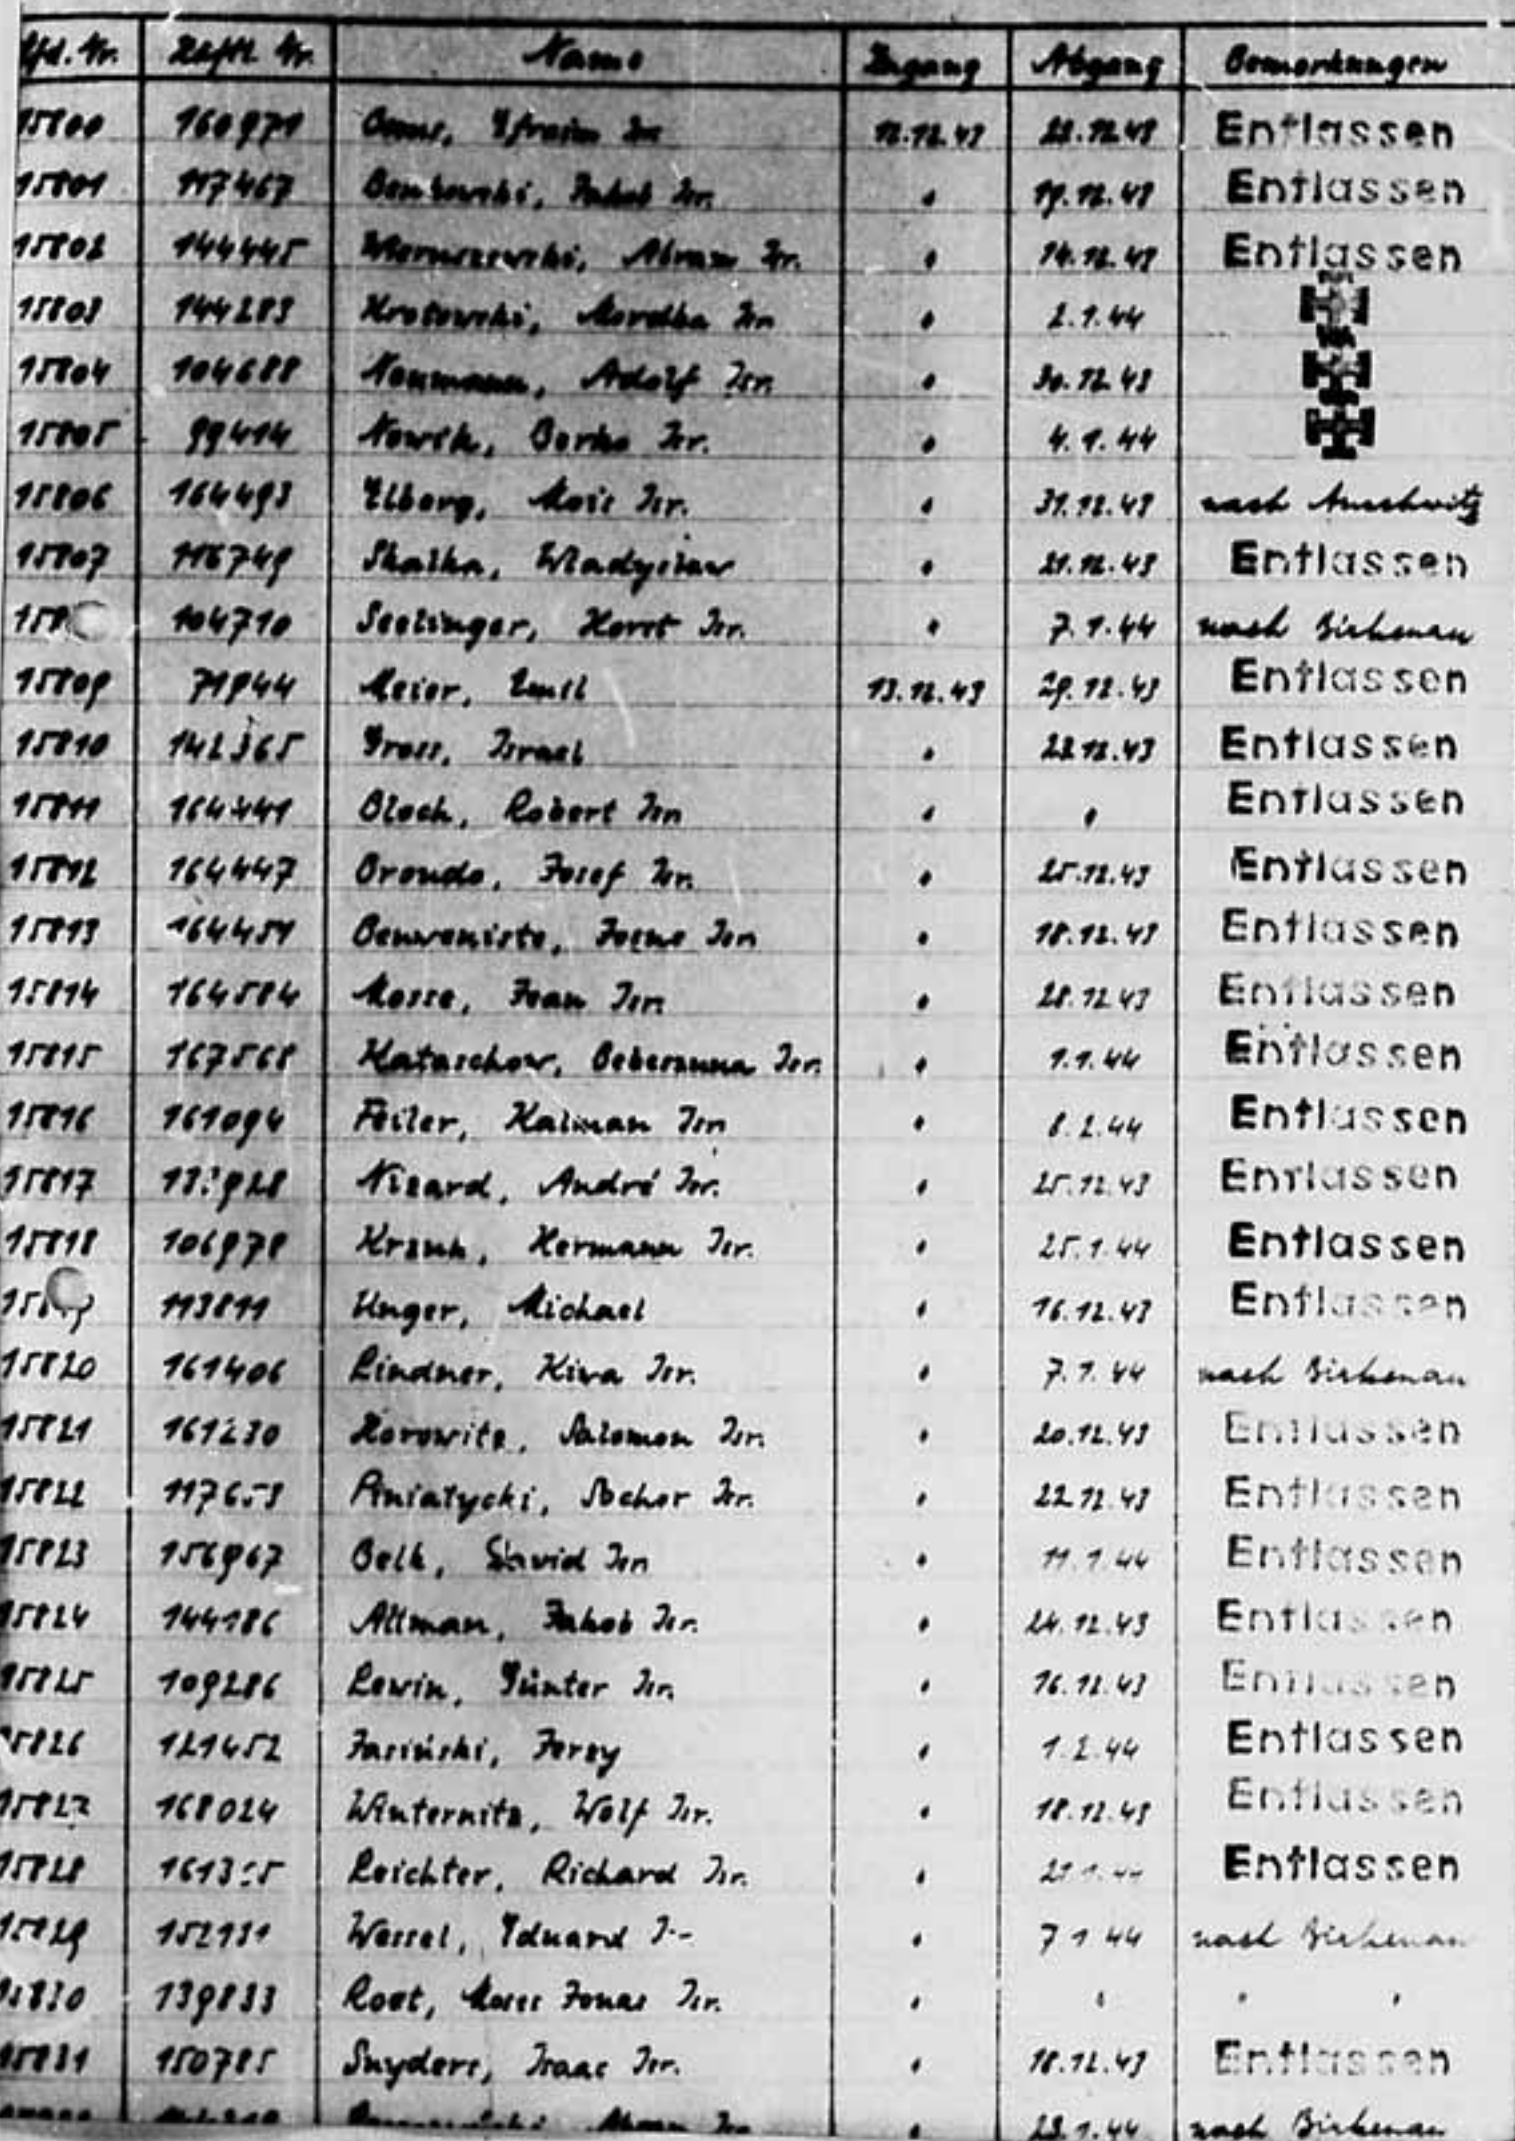 Lfd. Nr. Häftl. Nr. Name Zugang Abgang Bemerkungen
15800 160971 Isr. 12.12.43 Entlassen
15801 117467 Jakob Isr. " 19.12.43 Entlassen
15802 144445 Abram Isr. " 14.12.43 Entlassen
15803 144283 Krotowski, Mordka Isr. " 2.1.44
15804 104688 Neumann, Adolf Isr. " 30.12.43
15805 99414 Nowik, Berko Isr. " 4.1.44
15806 164493 Elberg, Isr. " 31.12.43 nach Auschwitz
15807 116749 Skalka, Wladyslaw " 21.12.43 Entlassen
104710 Seelinger, Horst Isr. " 7.1.44 nach Birkenau
15809 71944 Meier, Emil 13.12.43 29.12.43 Entlassen
15810 142365 Gross, Israel " 22.12.43 Entlassen
15811 164441 Bloch, Robert Isr. " " Entlassen
15812 164447 Broudo, Josef Isr. " 25.12.43 Entlassen
15813 164451 Benveniste, Isr. " 18.12.43 Entlassen
15814 164584 Mosse, Jean Isr. " 28.12.43 Entlassen
15815 167568 Kataschow, Isr. " 1.1.44 Entlassen
15816 161094 Feiler, Kalman Isr. " 8.2.44 Entlassen
15817 Nizard, André Isr. " 25.12.43 Entlassen
15818 106978 Hermann Isr. " 25.1.44 Entlassen
113811 Unger, Michael " 16.12.43 Entlassen
15820 161406 Lindner, Kiwa Isr. " 7.1.44 nach Birkenau
15821 161230 Horowitz, Salomon Isr. " 20.12.43 Entlassen
15822 Isr. " 22.12.43 Entlassen
15823 156967 Belk, Dawid Isr. " 11.1.44 Entlassen
15824 144186 Altman, Jakob Isr. " 24.12.43 Entlassen
15825 109286 Lewin, Günter Isr. " 16.12.43 Entlassen
15826 121452 Jasiński, Jerzy " 1.2.44 Entlassen
15827 168024 Winternitz, Wolf Isr. " 18.12.43 Entlassen
15828 Leichter, Richard Isr. " Entlassen
15829 152131 Wessel, Eduard " 7.1.44 nach Birkenau
15830 139833 Root, Moses Jonas Isr. " " " "
15831 150785 Snyders, Isaac Isr. " 18.12.43 Entlassen
" 23.1.44 nach Birkenau